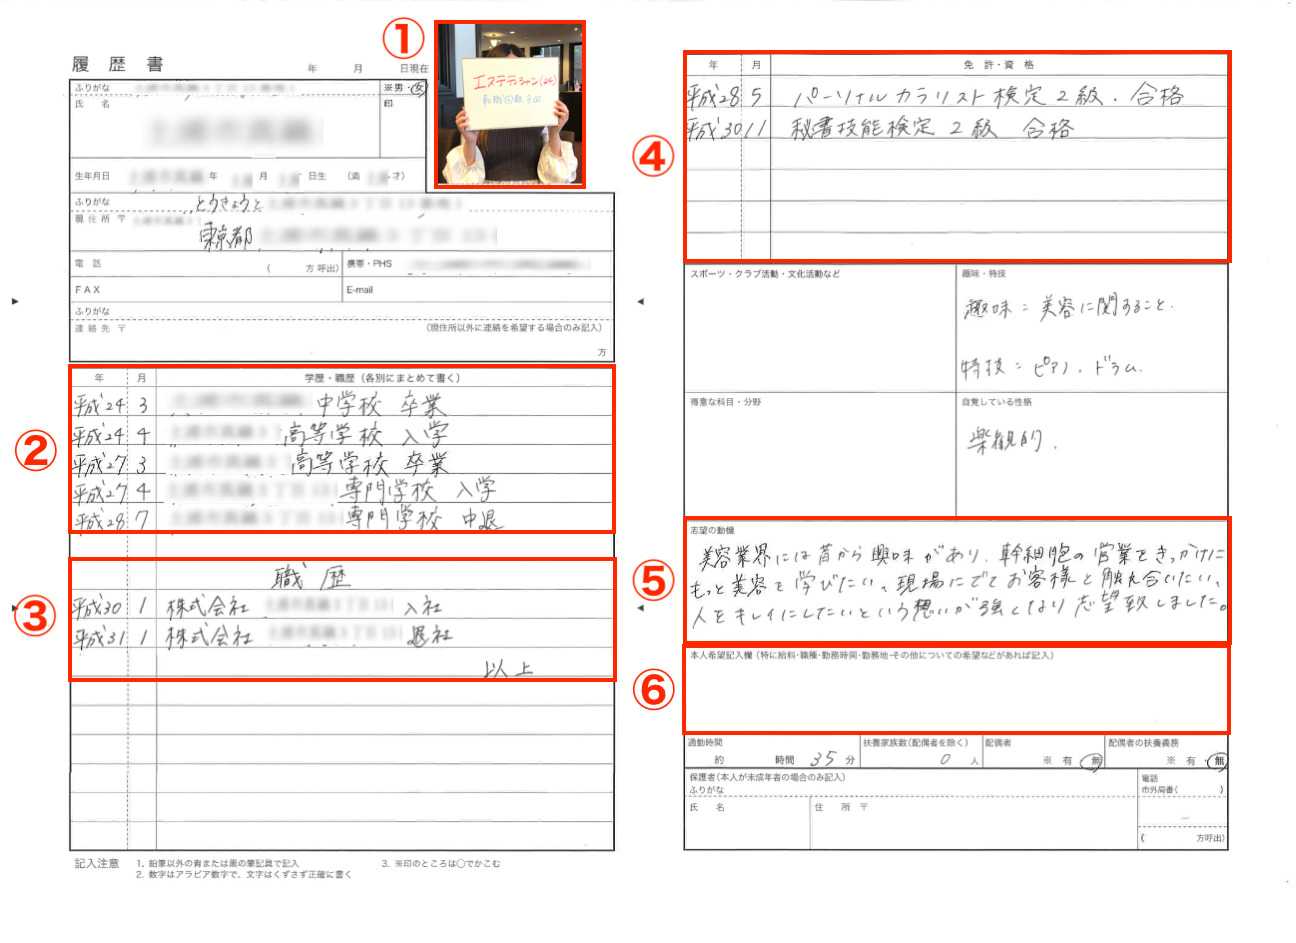 ①
履歴書
年 月 日現在
エステティシャン(24)
転職回数 0回
ふりがな
※男・女
氏 名
印
生年月日 年 月 日生 (満 才)
ふりがな とうきょうと
現住所 〒
東京都
電 話 ( 方呼出)
携帯・PHS
FAX
E-mail
ふりがな
連絡先 〒 (現住所以外に連絡を希望する場合のみ記入)
方
②
年 月 学歴・職歴 (各別にまとめて書く)
平成24 3 中学校 卒業
平成24 4 高等学校 入学
平成27 3 高等学校 卒業
平成27 4 専門学校 入学
平成28 7 専門学校 中退
③
職歴
平成30 1 株式会社 入社
平成31 1 株式会社 退社
以上
記入注意 1. 鉛筆以外の青または黒の筆記具で記入 3. ※印のところは○でかこむ
2. 数字はアラビア数字で、文字はくずさず正確に書く
④
年 月 免許・資格
平成28 5 パーソナルカラリスト検定2級. 合格
平成30 11 秘書技能検定 2級 合格
スポーツ・クラブ活動・文化活動など
趣味・特技
趣味:美容に関すること.
特技:ピアノ. ドラム.
得意な科目・分野
自覚している性格
楽観的.
⑤
志望の動機
美容業界には昔から興味があり、幹細胞の営業をきっかけに
もっと美容を学びたい。現場にでてお客様と触れ合いたい。
人をキレイにしたいという想いが強くなり志望致しました。
⑥
本人希望記入欄 (特に給料・職種・勤務時間・勤務地・その他についての希望などがあれば記入)
通勤時間
約 時間 35 分
扶養家族数(配偶者を除く)
0 人
配偶者
※ 有 無
配偶者の扶養義務
※ 有・無
保護者(本人が未成年者の場合のみ記入)
ふりがな
氏 名
住 所 〒
電話
市外局番( )
( 方呼出)